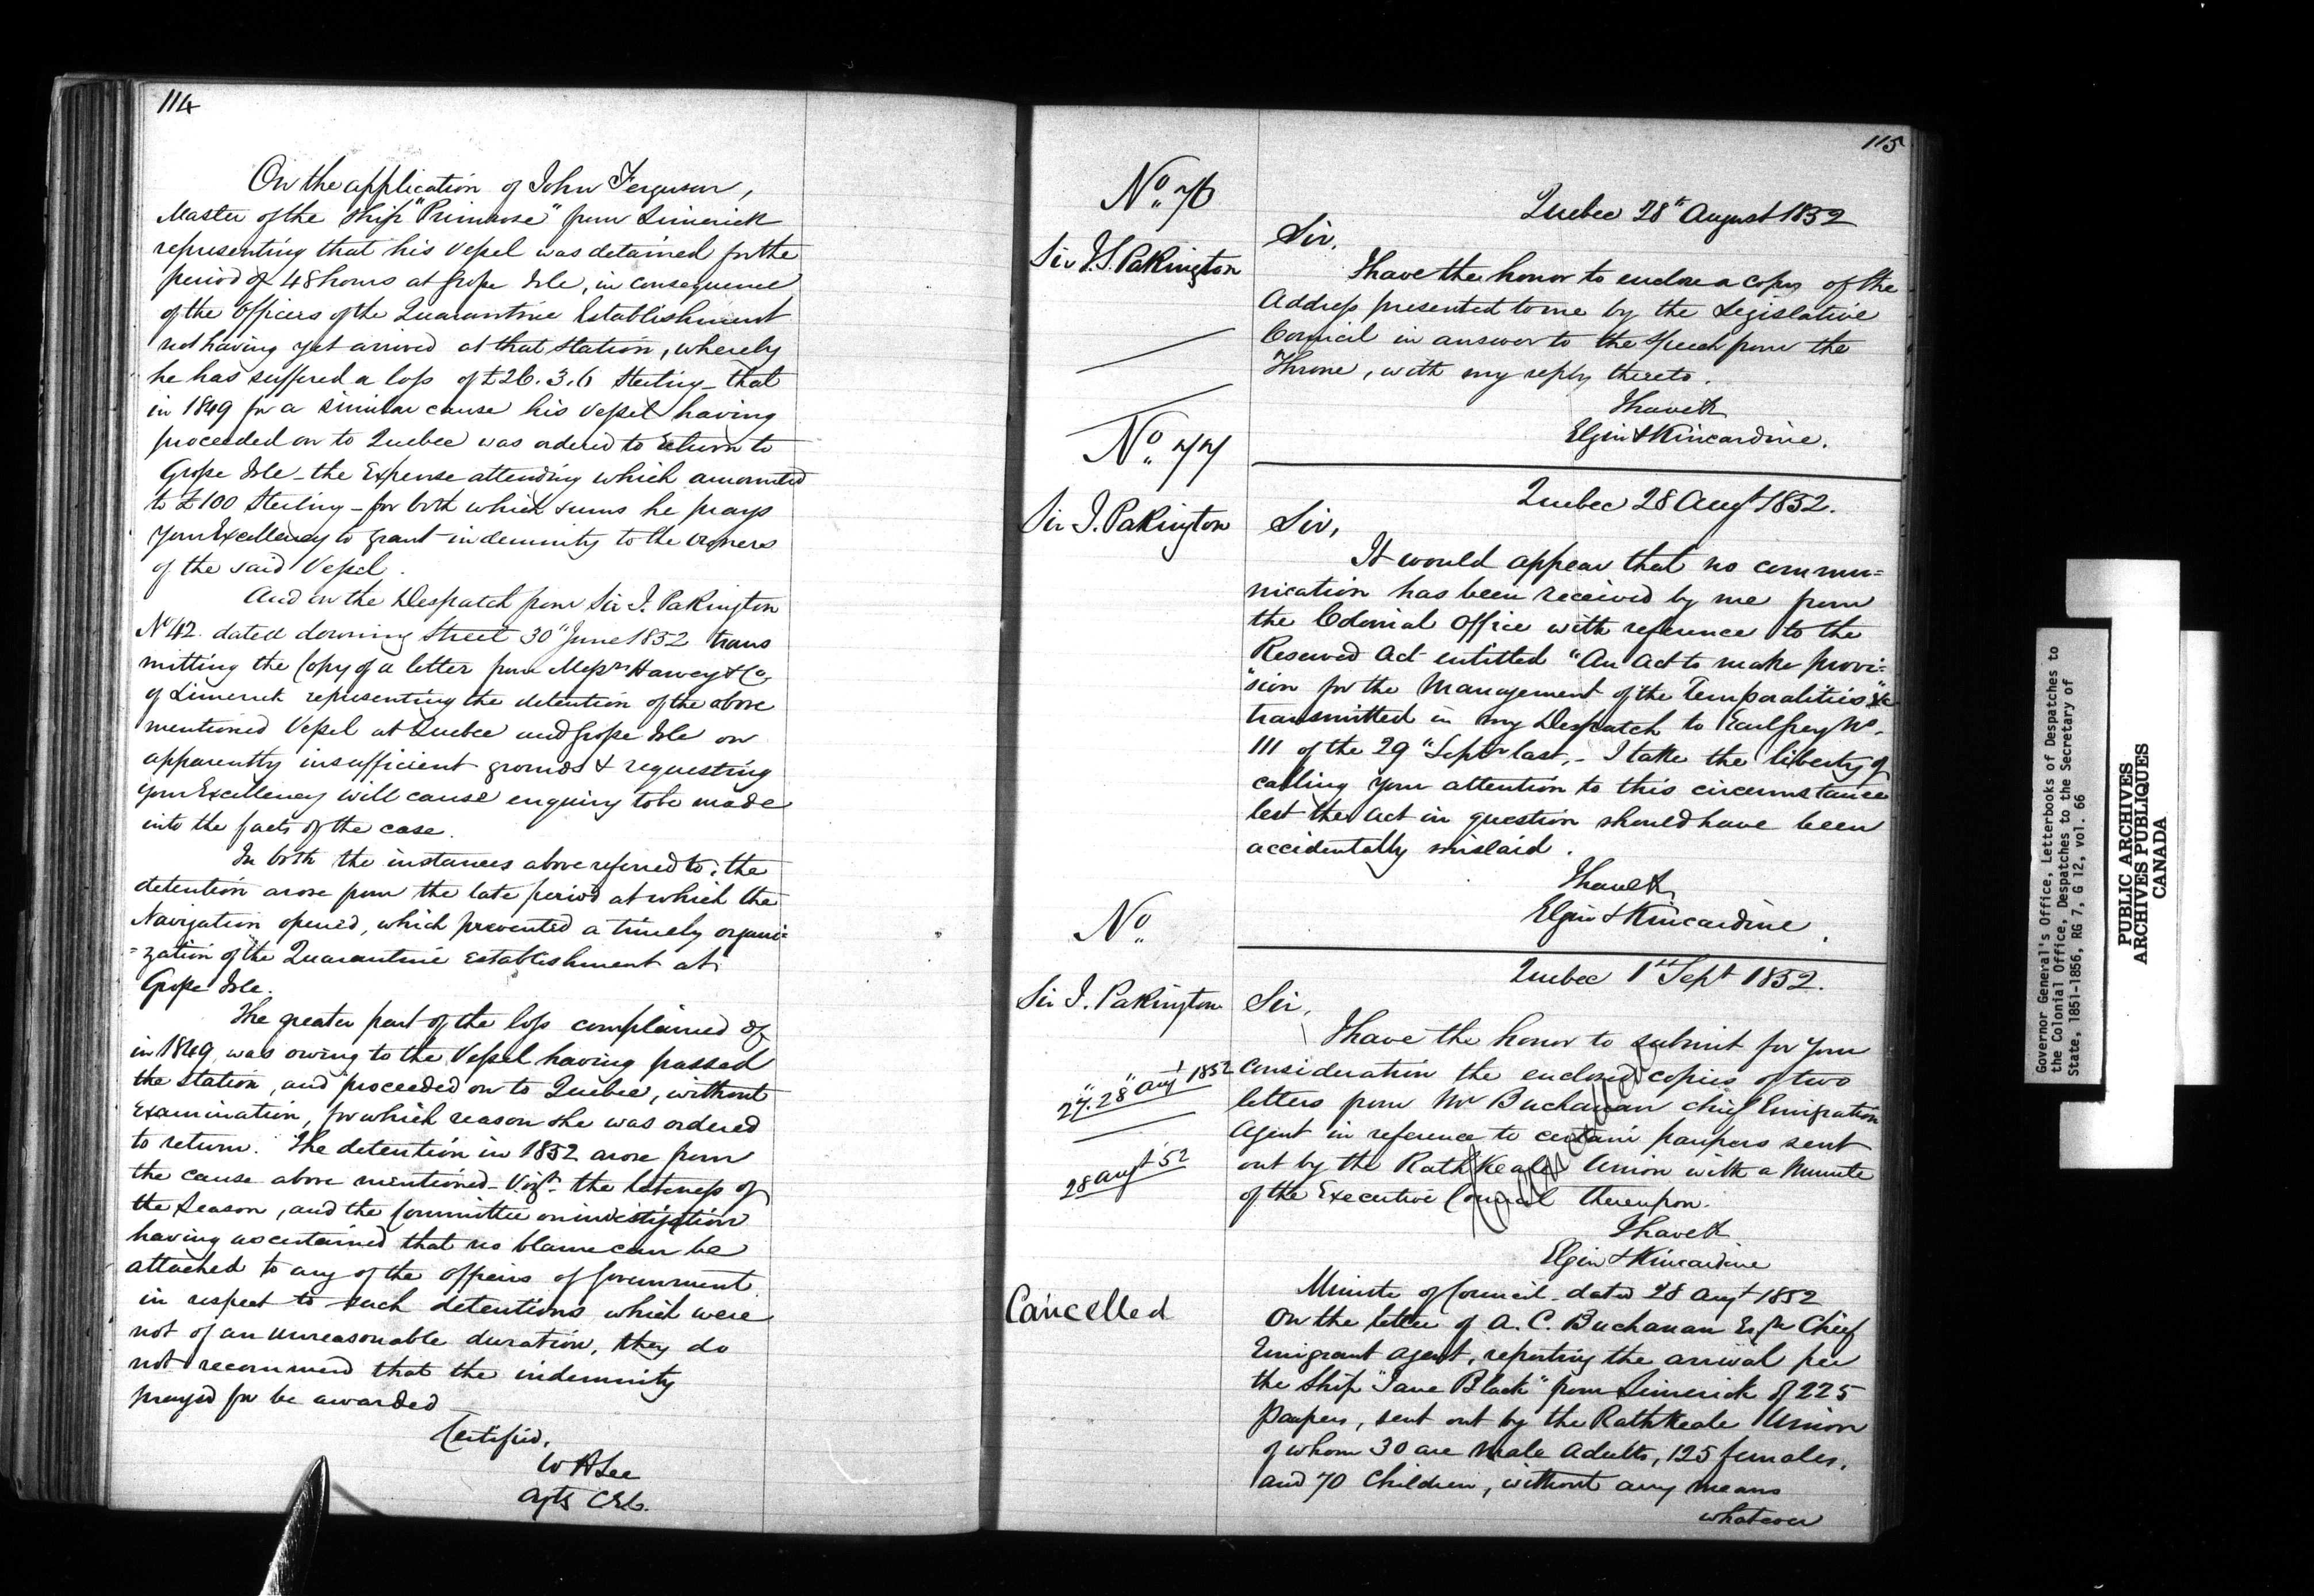 114
On the application of John Ferguson,
Master of the Ship "Primrose" from Limerick
representing that his Vessel was detained for the
period of 48 hours at Grosse Isle, in consequence
of the Officers of the Quarantine Establishment
not having yet arrived at that Station, whereby
he has suffered a loss of £26.3.6 Sterling – that
in 1849 for a similar cause his Vessel having
proceeded on to Quebec was ordered to return to
Grosse Isle – the Expense attending which amounted
to £100 Sterling – for both which sums he prays
Your Excellency to grant indemnity to the owners
of the said Vessel.
And on the Despatch from Sir J. Pakington
No 42. dated Downing Street 30" June 1852 trans
mitting the Copy of a letter from Messrs Harvey & Co
of Limerick representing the detention of the above
mentioned Vessel at Quebec and Grosse Isle on
apparently insufficient grounds & requesting
your Excellency will cause enquiry to be made
into the facts of the case.
In both the instances above referred to, the
detention arose from the late period at which the
Navigation opened, which prevented a timely organi=
=zation of the Quarantine Establishment at
Grosse Isle.
The greater part of the loss complained of
in 1849 was owing to the Vessel having passed
the Station, and proceeded on to Quebec, without
Examination, for which reason she was ordered
to return. The detention in 1852 arose from
the cause above mentioned – Vizt. the lateness of
the Season, and the Committee on investigation
having ascertained that no blame can be
attached to any of the Officers of Government
in respect to such detentions which were
not of an unreasonable duration, they do
not recommend that the indemnity
prayed for be awarded –
Certified,
W H Lee
Actg C.E.C.
115
No. 76
Quebec 28th August 1852
Sir J.S. Pakington
Sir,
I have the honor to enclose a copy of the
Address presented to me by the Legislative
Council in answer to the Speech from the
Throne, with my reply thereto.
I have &
Elgin & Kincardine.
No. 77
Quebec 28 Augt 1852.
Sir J. Pakington
Sir,
It would appear that no commu=
nication has been received by me from
the Colonial Office with reference to the
Reserved Act entitled "An Act to make provi=
"sion for the Management of the Temporalities" &c
transmitted in my Despatch to Earl Grey No.
111 of the 29" Septr last, – I take the liberty of
calling your attention to this circumstance
lest the Act in question should have been
accidentally mislaid.
I have &
Elgin & Kincardine.
No.
Quebec 1st Sept 1852.
Sir J. Pakington
Sir,
I have the honor to submit for your
27". 28" Augt 1852
consideration the enclosed copies of two
letters from Mr Buchanan Chief Emigration
Agent in reference to certain paupers sent
28 augt 52
out by the RathKeale Union with a Minute
of the Executive Council thereupon.
Cancelled
I have &
Elgin & Kincardine
Cancelled
Minute of Council – dated 28 Augt 1852
On the letter of A. C. Buchanan Esqre Chief
Emigrant Agent, reporting the arrival per
the Ship "Jane Black" from Limerick of 225
Paupers, sent out by the RathKeale Union
of whom 30 are Male Adults, 125 females,
and 70 Children, without any means
whatever
Governor General's Office, Letterbooks of Despatches to
the Colonial Office, Despatches to the Secretary of
State, 1851-1856, RG 7, G 12, vol. 66
PUBLIC ARCHIVES
ARCHIVES PUBLIQUES
CANADA